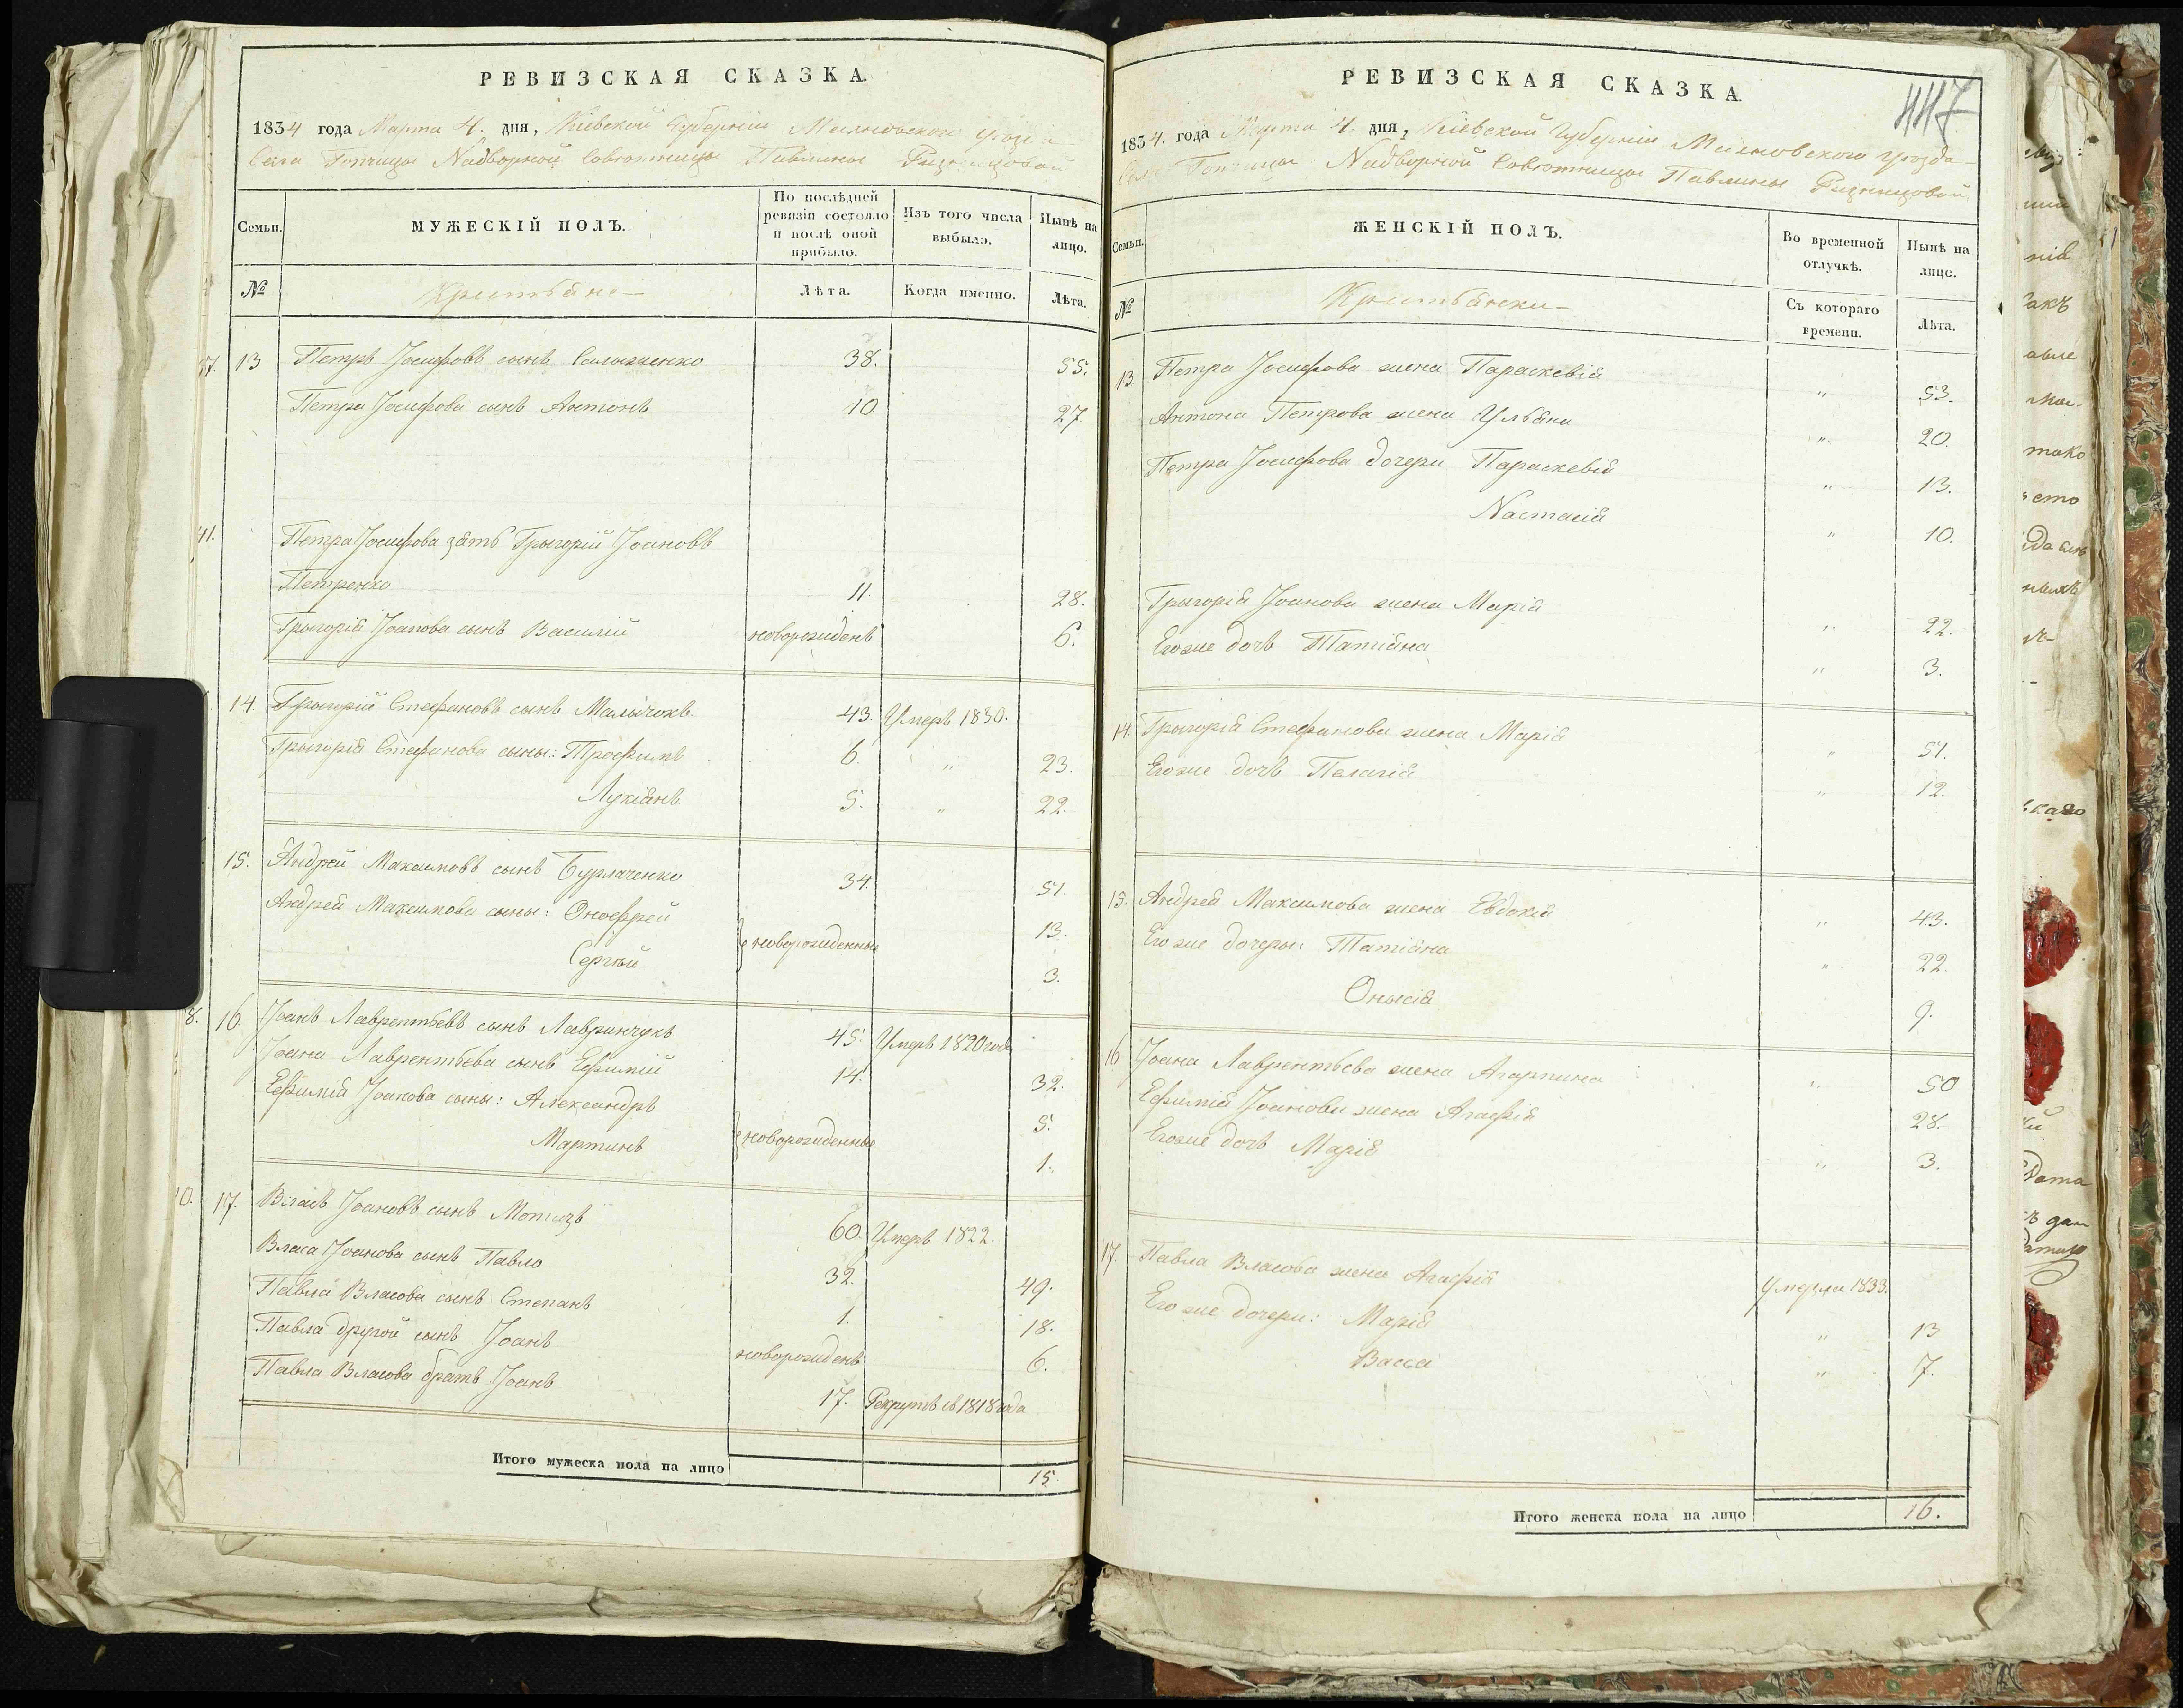 РЕВИЗСКАЯ СКАЗКА.
1834 года Марта 4. дня, Кіевской Губерніи
Села Надворной Совѣтницы Павлины
Семьи.
МУЖЕСКІЙ ПОЛЪ.
По послѣдней ревизіи состояло и послѣ оной прибыло.
Изъ того числа выбыло.
Нынѣ на лицо.
№
Крестьяне
Лѣта.
Когда именно.
Лѣта.
13 Петръ Іосифовъ сынъ 38. 55.
Петра Іосифова сынъ Антонъ 10 27.
41.
Петра Іосифова зять Григорій Іоановъ
Петренко 11. 28.
Григорія Іоанова сынъ Василій новорожденъ 6.
14. Григорій Стефановъ сынъ 43. Умеръ 1830.
Григорія Стефанова сыны: Трофимъ 6. " 23.
Лукіянъ 5. " 22.
15. Андрей Максимовъ сынъ Бурлаченко 34. 51.
Андрея Максимова сыны: Онофрей 13.
новорожденные
Сергѣй 3.
8. 16. Іоанъ Лаврентьевъ сынъ Лавринчукъ 45. Умеръ 1820 года
Іоана Лаврентьева сынъ Ефимій 14. 32.
Ефимія Іоанова сыны: Александръ 5.
новорожденные
Мартинъ 1.
0. 17. Власъ Іоановъ сынъ 60. Умеръ 1822.
Власа Іоанова сынъ Павло 32. 49.
Павла Власова сынъ Степанъ 1. 18.
Павла другой сынъ Іоанъ новорожденъ 6.
Павла Власова братъ Іоанъ 17. Рекрутъ съ 1818 года
Итого мужеска пола на лицо 15.
РЕВИЗСКАЯ СКАЗКА.
1834. года Марта 4. дня, Кіевской Губерніи уѣзда
Надворной Совѣтницы Павлины
Семьи.
ЖЕНСКІЙ ПОЛЪ.
Во временной отлучкѣ.
Нынѣ на лицо.
№
Крестьянки
Съ котораго времени.
Лѣта.
13 Петра Іосифова жена Параскевія " 53.
Антона Петрова жена Ульяна " 20.
Петра Іосифова дочери Параскевія " 13.
Настасія " 10.
Григорія Іоанова жена Марія " 22.
Егоже дочь Татіяна " 3.
14. Григорія Стефанова жена Марія " 51.
Егоже дочь Пелагія " 12.
15. Андрея Максимова жена Евдокія " 43.
Егоже дочеры: Татіяна " 22.
Онысія 9.
16 Іоана Лаврентьева жена Агарпина " 50
Ефимія Іоанова жена Агафія 28.
Егоже дочь Марія " 3.
17. Павла Власова жена Агафія Умерла 1833.
Егоже дочери: Марія " 13
Васса " 7.
Итого женска пола на лицо 16.